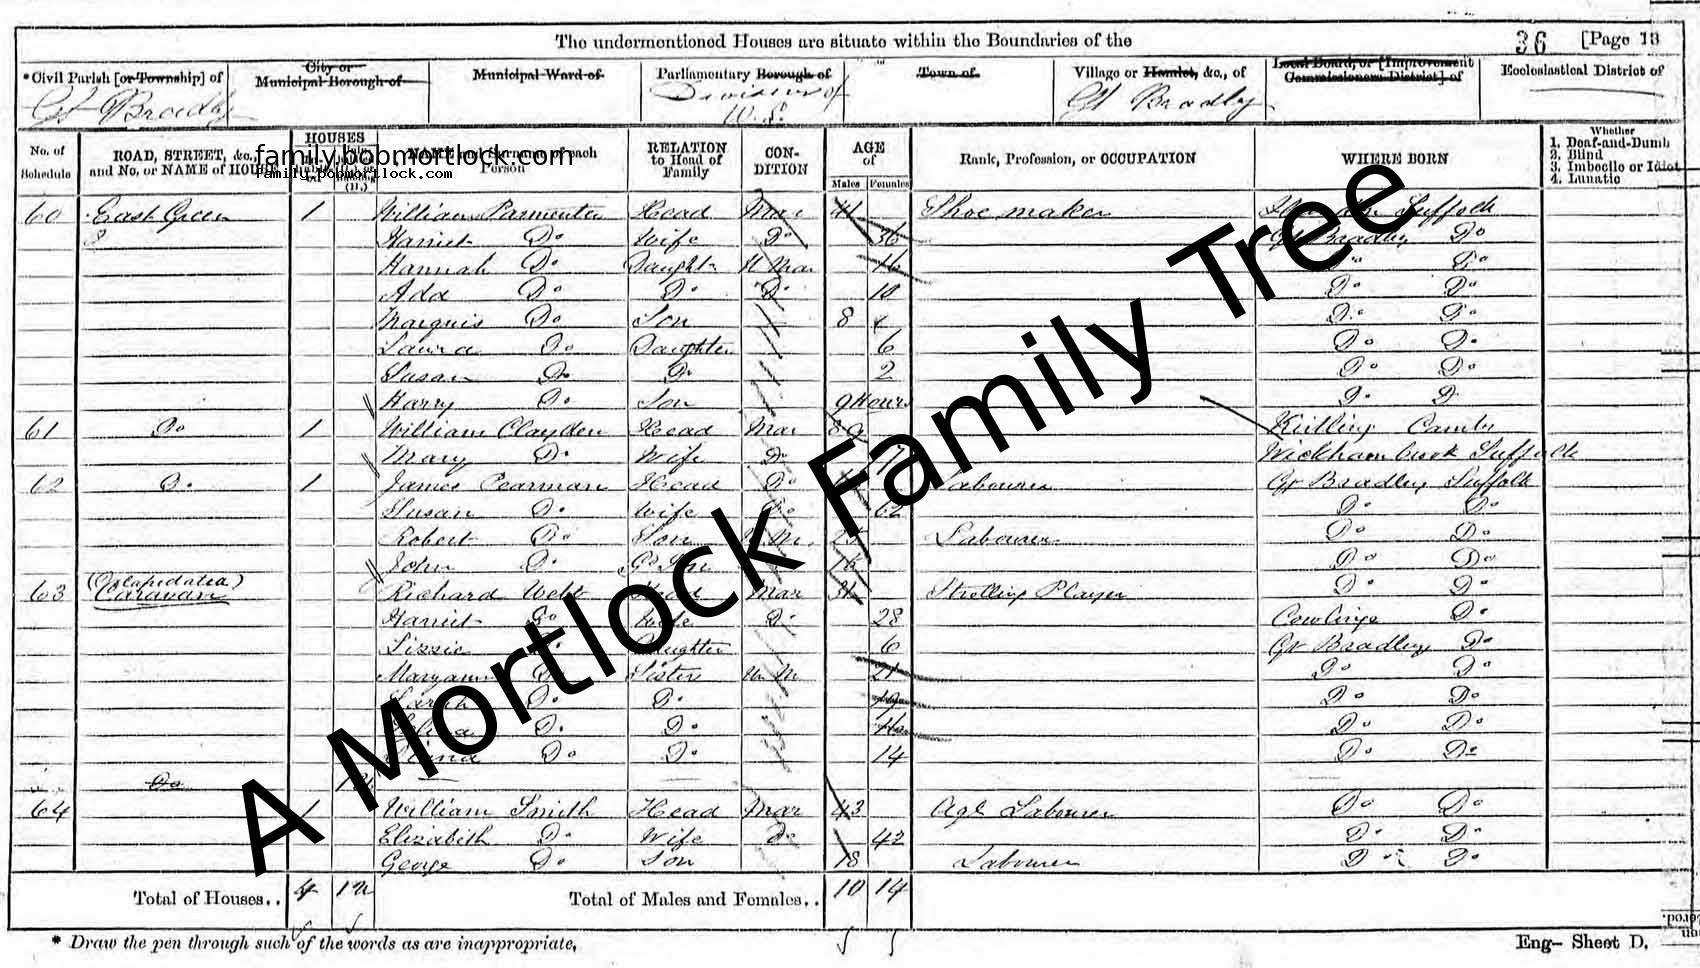 The undermentioned Houses are situate within the Boundaries of the
36 [Page 13
*Civil Parish [or Township] of
City or Municipal Borough of
Municipal Ward of
Parliamentary Borough of
Town of
Village or Hamlet, &c., of
Local Board, or [Improvement Commissioners District] of
Ecclesiastical District of
Gt Bradley
Division of W. S.
Gt Bradley
No. of Schedule
ROAD, STREET, &c., and No. or NAME of HOUSE
HOUSES
NAME and Surname of each Person
RELATION to Head of Family
CONDITION
AGE of
Males Females
Rank, Profession, or OCCUPATION
WHERE BORN
Whether
1. Deaf-and-Dumb
2. Blind
3. Imbecile or Idiot
4. Lunatic
family.bobmortlock.com
family.bobmortlock.com
60 East Green 1 William Parmenter Head Mar 41 Shoe maker Suffolk
Harriet Do Wife Do 36 Gt Bradley Do
Hannah Do Daughtr U Mar 16 Do Do
Ada Do Do Do 10 Do Do
Marquis Do Son 8 Do Do
Laura Do Daughter 6 Do Do
Susan Do Do 2 Do Do
Harry Do Son 9 Hours Do Do
61 Do 1 William Clayden Head Mar Kirtling Cambs
Mary Do Wife Do Wickhambrook Suffolk
62 Do 1 James Pearman Head Do Labourer Gt Bradley Suffolk
Susan Do Wife Do 62 Do Do
Robert Do Son U. M. Labourer Do Do
John Do Gd Son Do Do
63 Caravan Richard Webb Head Mar 31 Strolling Player Do Do
Harriet Do Wife Do 28 Cowlinge Do
Lizzie Do Daughter 6 Gt Bradley Do
Maryann Do Sister U. M. 21 Do Do
Sarah Do Do 19 Do Do
Do Do Do Do
Do Do 14 Do Do
Do
64 1 William Smith Head Mar 43 Agl Labourer Do Do
Elizabeth Do Wife Do 42 Do Do
George Do Son 18 Labourer Do Do
Total of Houses.. 4
Total of Males and Females.. 10 14
* Draw the pen through such of the words as are inappropriate,
Eng- Sheet D.
A Mortlock Family Tree